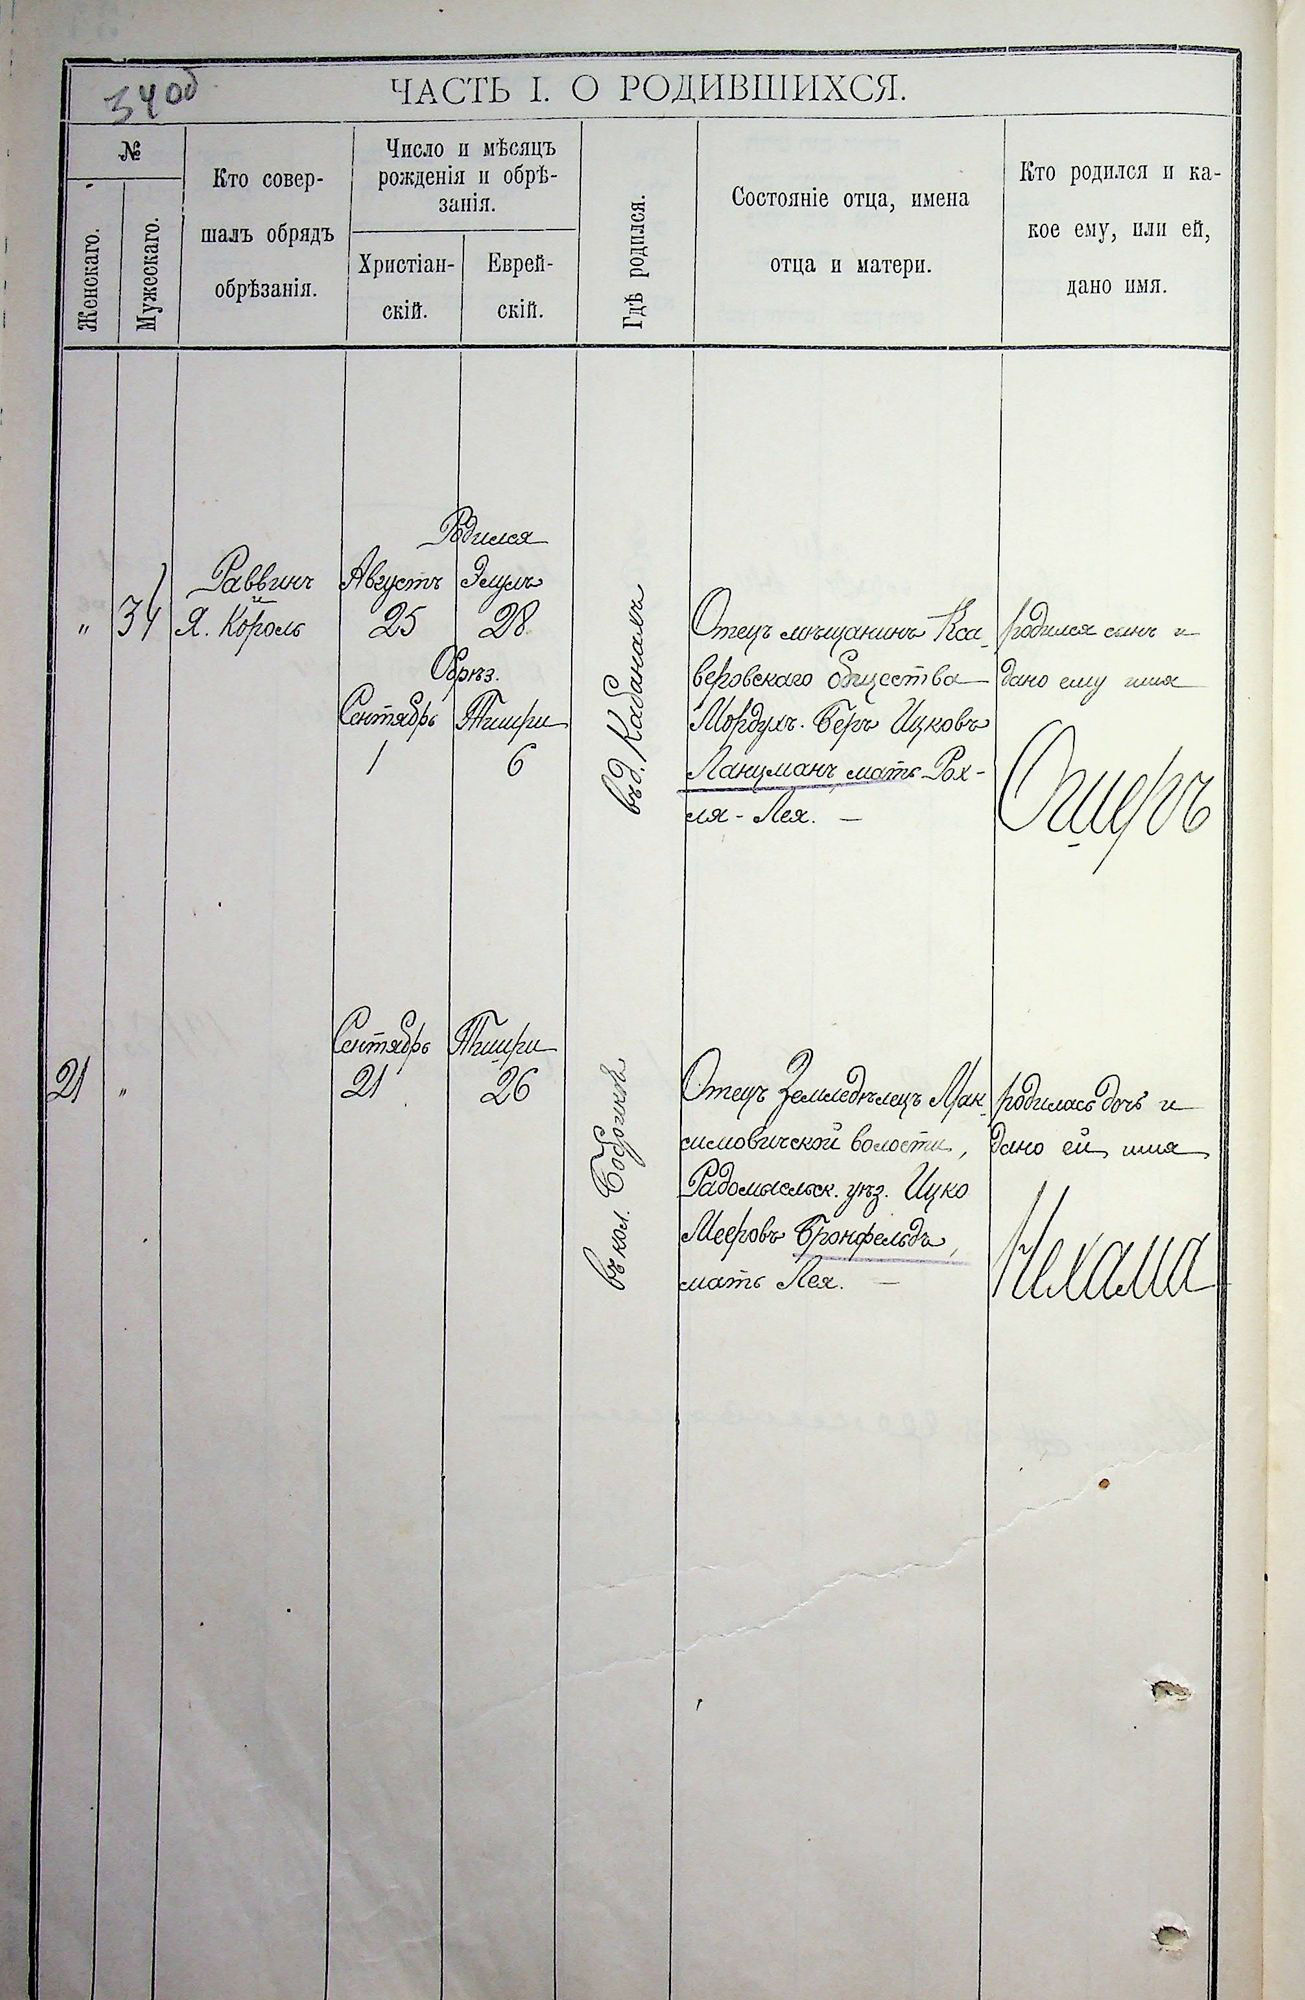 34 об
ЧАСТЬ I. О РОДИВШИХСЯ.
№
Женскаго.
Мужескаго.
Кто совер-
шалъ обрядъ
обрѣзанія.
Число и мѣсяцъ
рожденія и обрѣ-
занія.
Христіан-
скій.
Еврей-
скій.
Гдѣ родился.
Состояніе отца, имена
отца и матери.
Кто родился и ка-
кое ему, или ей,
дано имя.
Родился
Раввинъ Августъ Элулъ
" 34 Я. Король 25 28
Обрѣз.
Сентябрь Тишри
1 6
въ д. Кабанахъ
Отецъ мѣщанинъ Ка-
веровскаго общества
Мордухъ-Беръ Ицковъ
Ланцманъ, мать Рох-
ля-Лея. —
родился сынъ и
дано ему имя
Ошеръ
Сентябрь Тишри
21 " 21 26
въ кол. Бобрикѣ
Отецъ Земледѣлецъ Мак-
симовичской волости,
Радомысльск. уѣз. Ицко
Мееровъ Бронфельдъ,
мать Лея. —
родилась дочь и
дано ей имя
Нехама